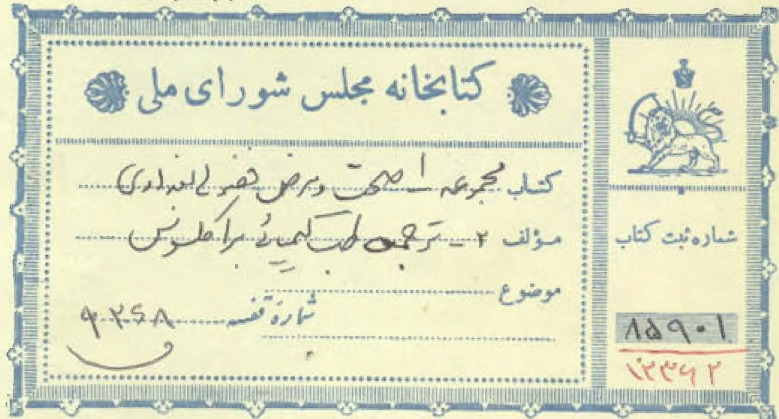 کتابخانه مجلس شورای ملی
کتاب مجموعه ۱ـ صحت و مرض فضولی بغدادی
مؤلف ۲ـ ترجمه طب کیمیائی براکلسوس
موضوع
شماره قفسه ۹۲۶۸
شماره ثبت کتاب
۸۵۹۰۱
۱۲۳۶۲